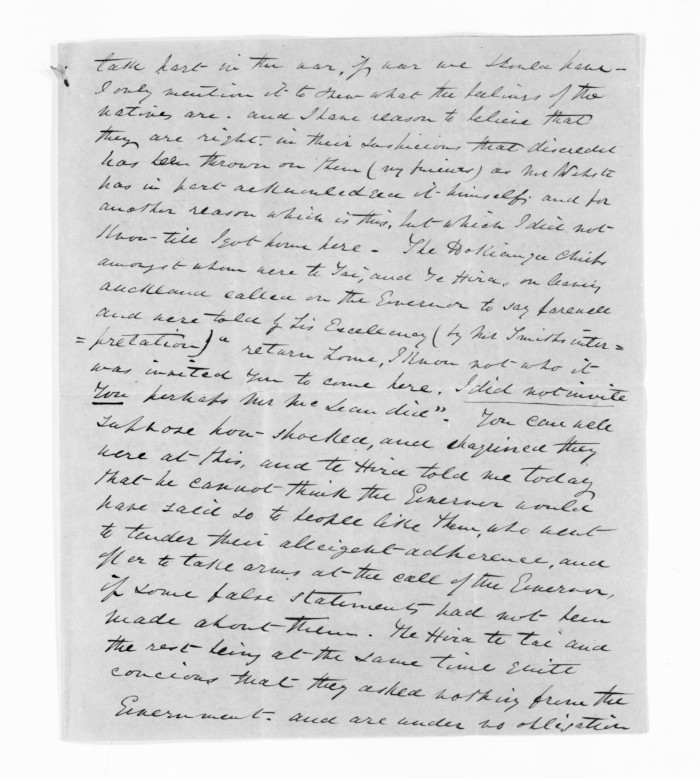 take part in the war, if war we should have -
I only mention it to shew what the feelings of the
natives are. and I have reason to believe that
they are right in their suspicions that discredit
has been thrown on them (my friends) as Mr Webster
has in part acknowledged it himself; and for
another reason which is this, but which I did not
know till I got home here - The Hokianga Chiefs
amongst whom were te Tai, and Te Hira, on leaving
Auckland called on the Governor to say farewell
and were told by His Excellency (by Mr Smiths inter=
=pretation) "return home, I know not who it
was invited you to come here. I did not invite
You perhaps Mr McLean did". You can well
suppose how shocked, and chagrined they
were at this, and te Hira told me today
that he cannot think the Governor would
have said so to people like them, who went
to tender their allegiance adherence, and
offer to take arms at the call of the Governor,
if some false statements had not been
made about them. Te Hira te Tai and
the rest being at the same time quite
concious that they asked nothing from the
Government. and are under no obligation